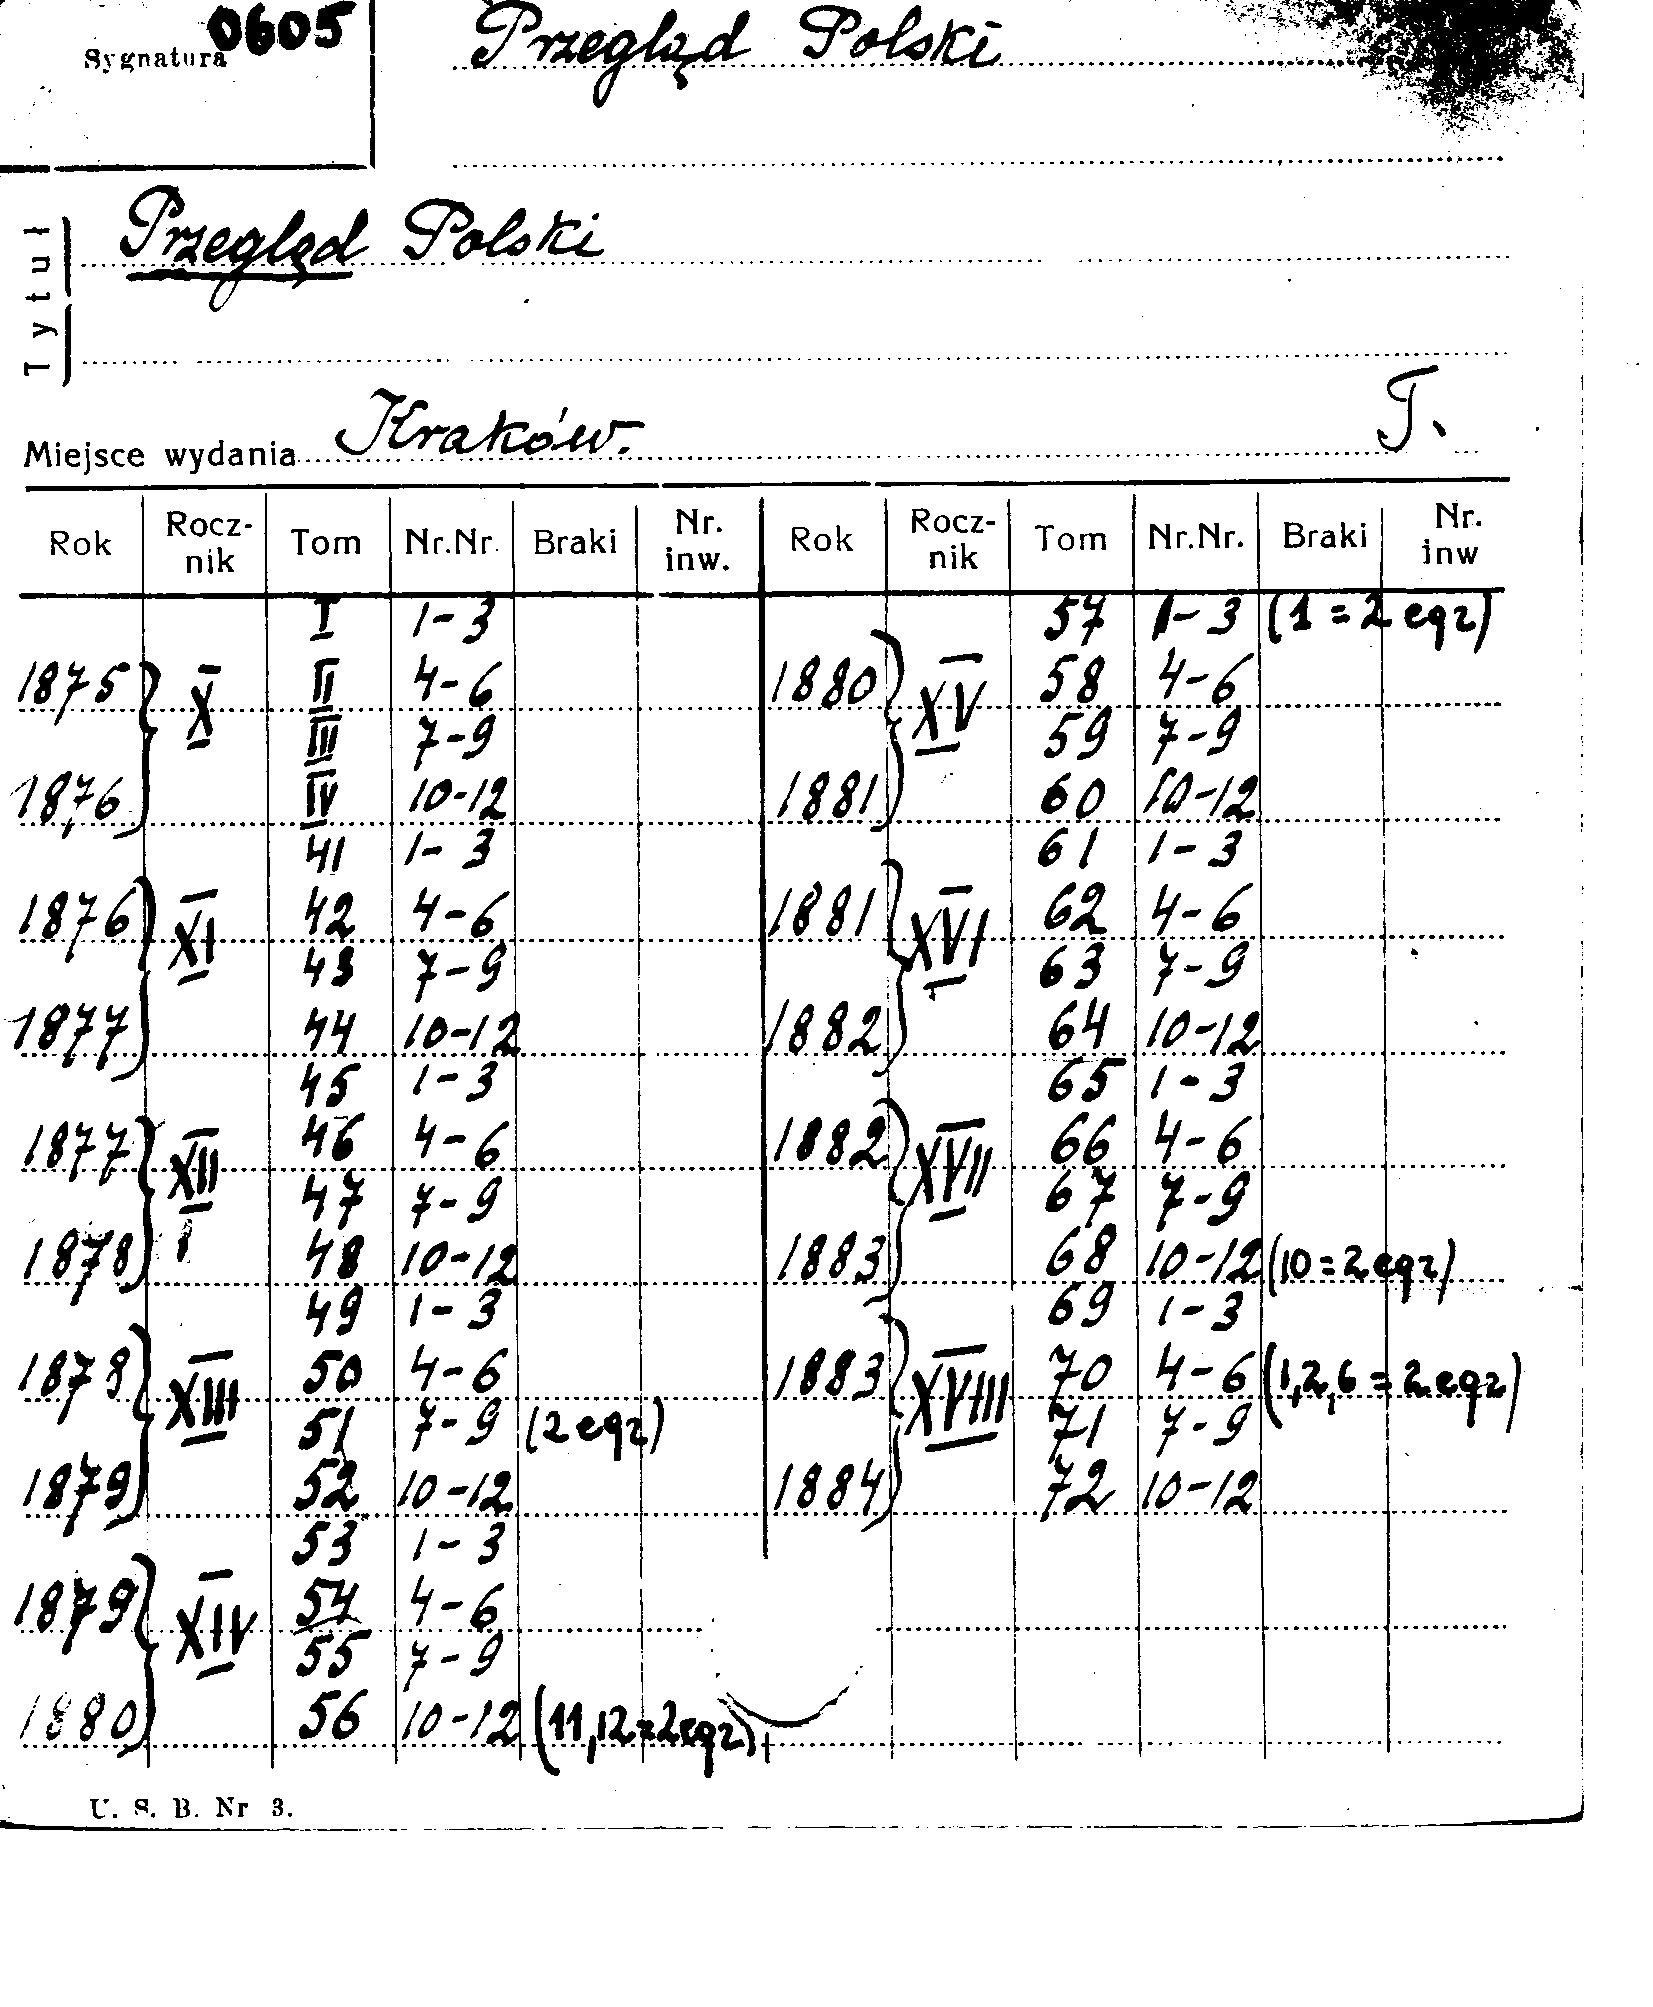 Sygnatura 0605 Przegląd Polski
Tytuł Przegląd Polski
Miejsce wydania Kraków. T.
Rok Rocz-nik Tom Nr.Nr. Braki Nr. inw. Rok Rocz-nik Tom Nr.Nr. Braki Nr. inw
I 1-3 57 1-3 (1=2 egz)
1875 X II 4-6 1880 XV 58 4-6
III 7-9 59 7-9
1876 IV 10-12 1881 60 10-12
41 1-3 61 1-3
1876 XI 42 4-6 1881 XVI 62 4-6
43 7-9 63 7-9
1877 44 10-12 1882 64 10-12
45 1-3 65 1-3
1877 XII 46 4-6 1882 XVII 66 4-6
47 7-9 67 7-9
1878 48 10-12 1883 68 10-12 (10=2 egz)
49 1-3 69 1-3
1878 XIII 50 4-6 1883 XVIII 70 4-6 (1,2,6=2 egz)
51 7-9 (2 egz) 71 7-9
1879 52 10-12 1884 72 10-12
53 1-3
1879 XIV 54 4-6
55 7-9
1880 56 10-12 (11,12=2egz)
U. S. B. Nr 3.